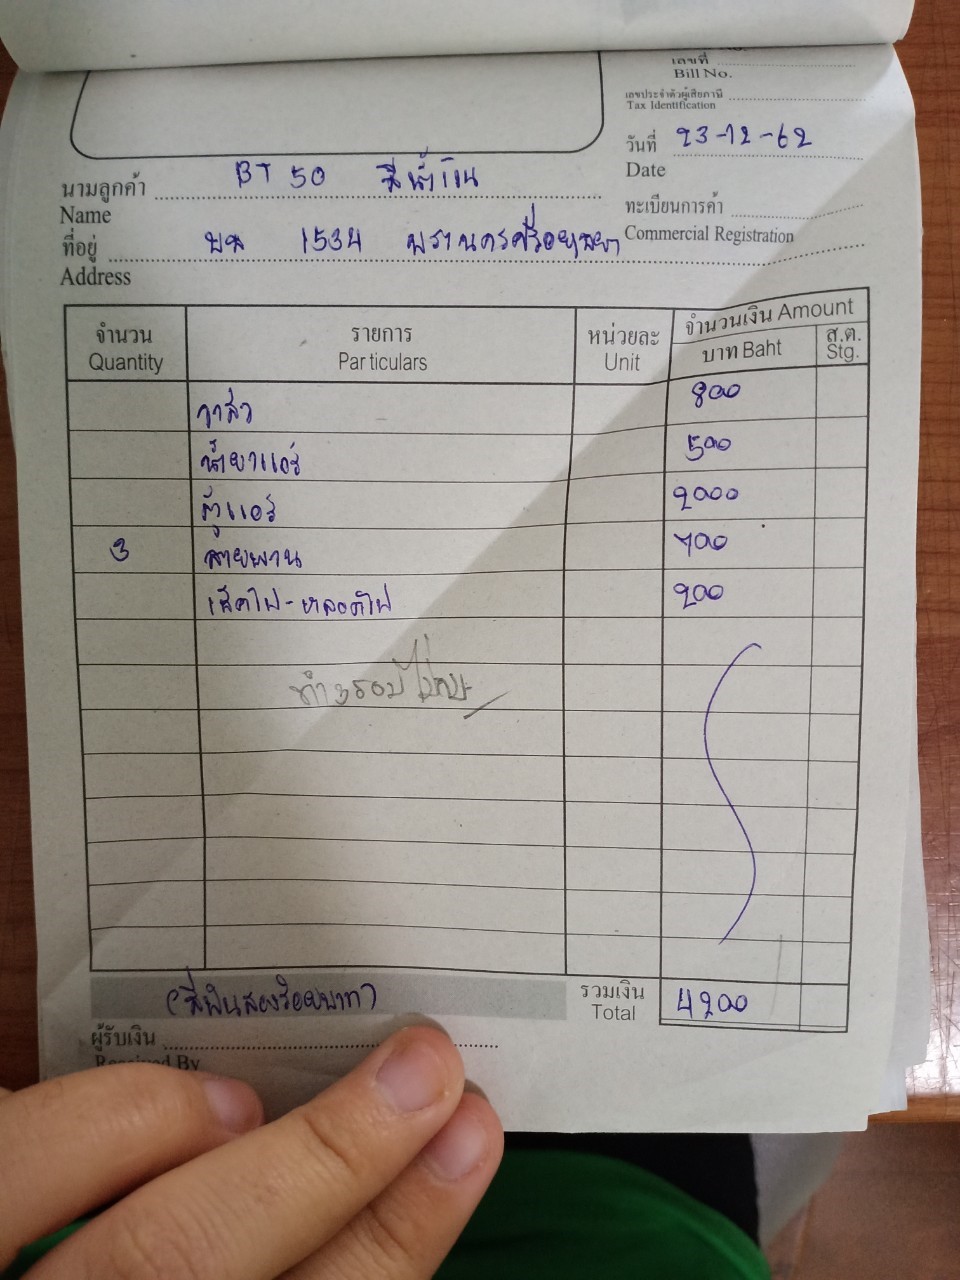 เลขที่
Bill No.
เลขประจำตัวผู้เสียภาษี
Tax Identification
วันที่ 23-12-62
Date
นามลูกค้า BT 50 สีน้ำเงิน
Name
ทะเบียนการค้า
Commercial Registration
ที่อยู่ บห 1534 พระนครศรีอยุธยา
Address
จำนวน รายการ หน่วยละ จำนวนเงิน Amount
Quantity Particulars Unit บาท Baht ส.ต. Stg.
วาล์ว 800
น้ำยาแอร์ 500
ตู้แอร์ 2000
3 สายพาน 700
เช็คไฟ-หลอดไฟ 200
(สี่พันสองร้อยบาท) รวมเงิน 4200
Total
ผู้รับเงิน
Received By